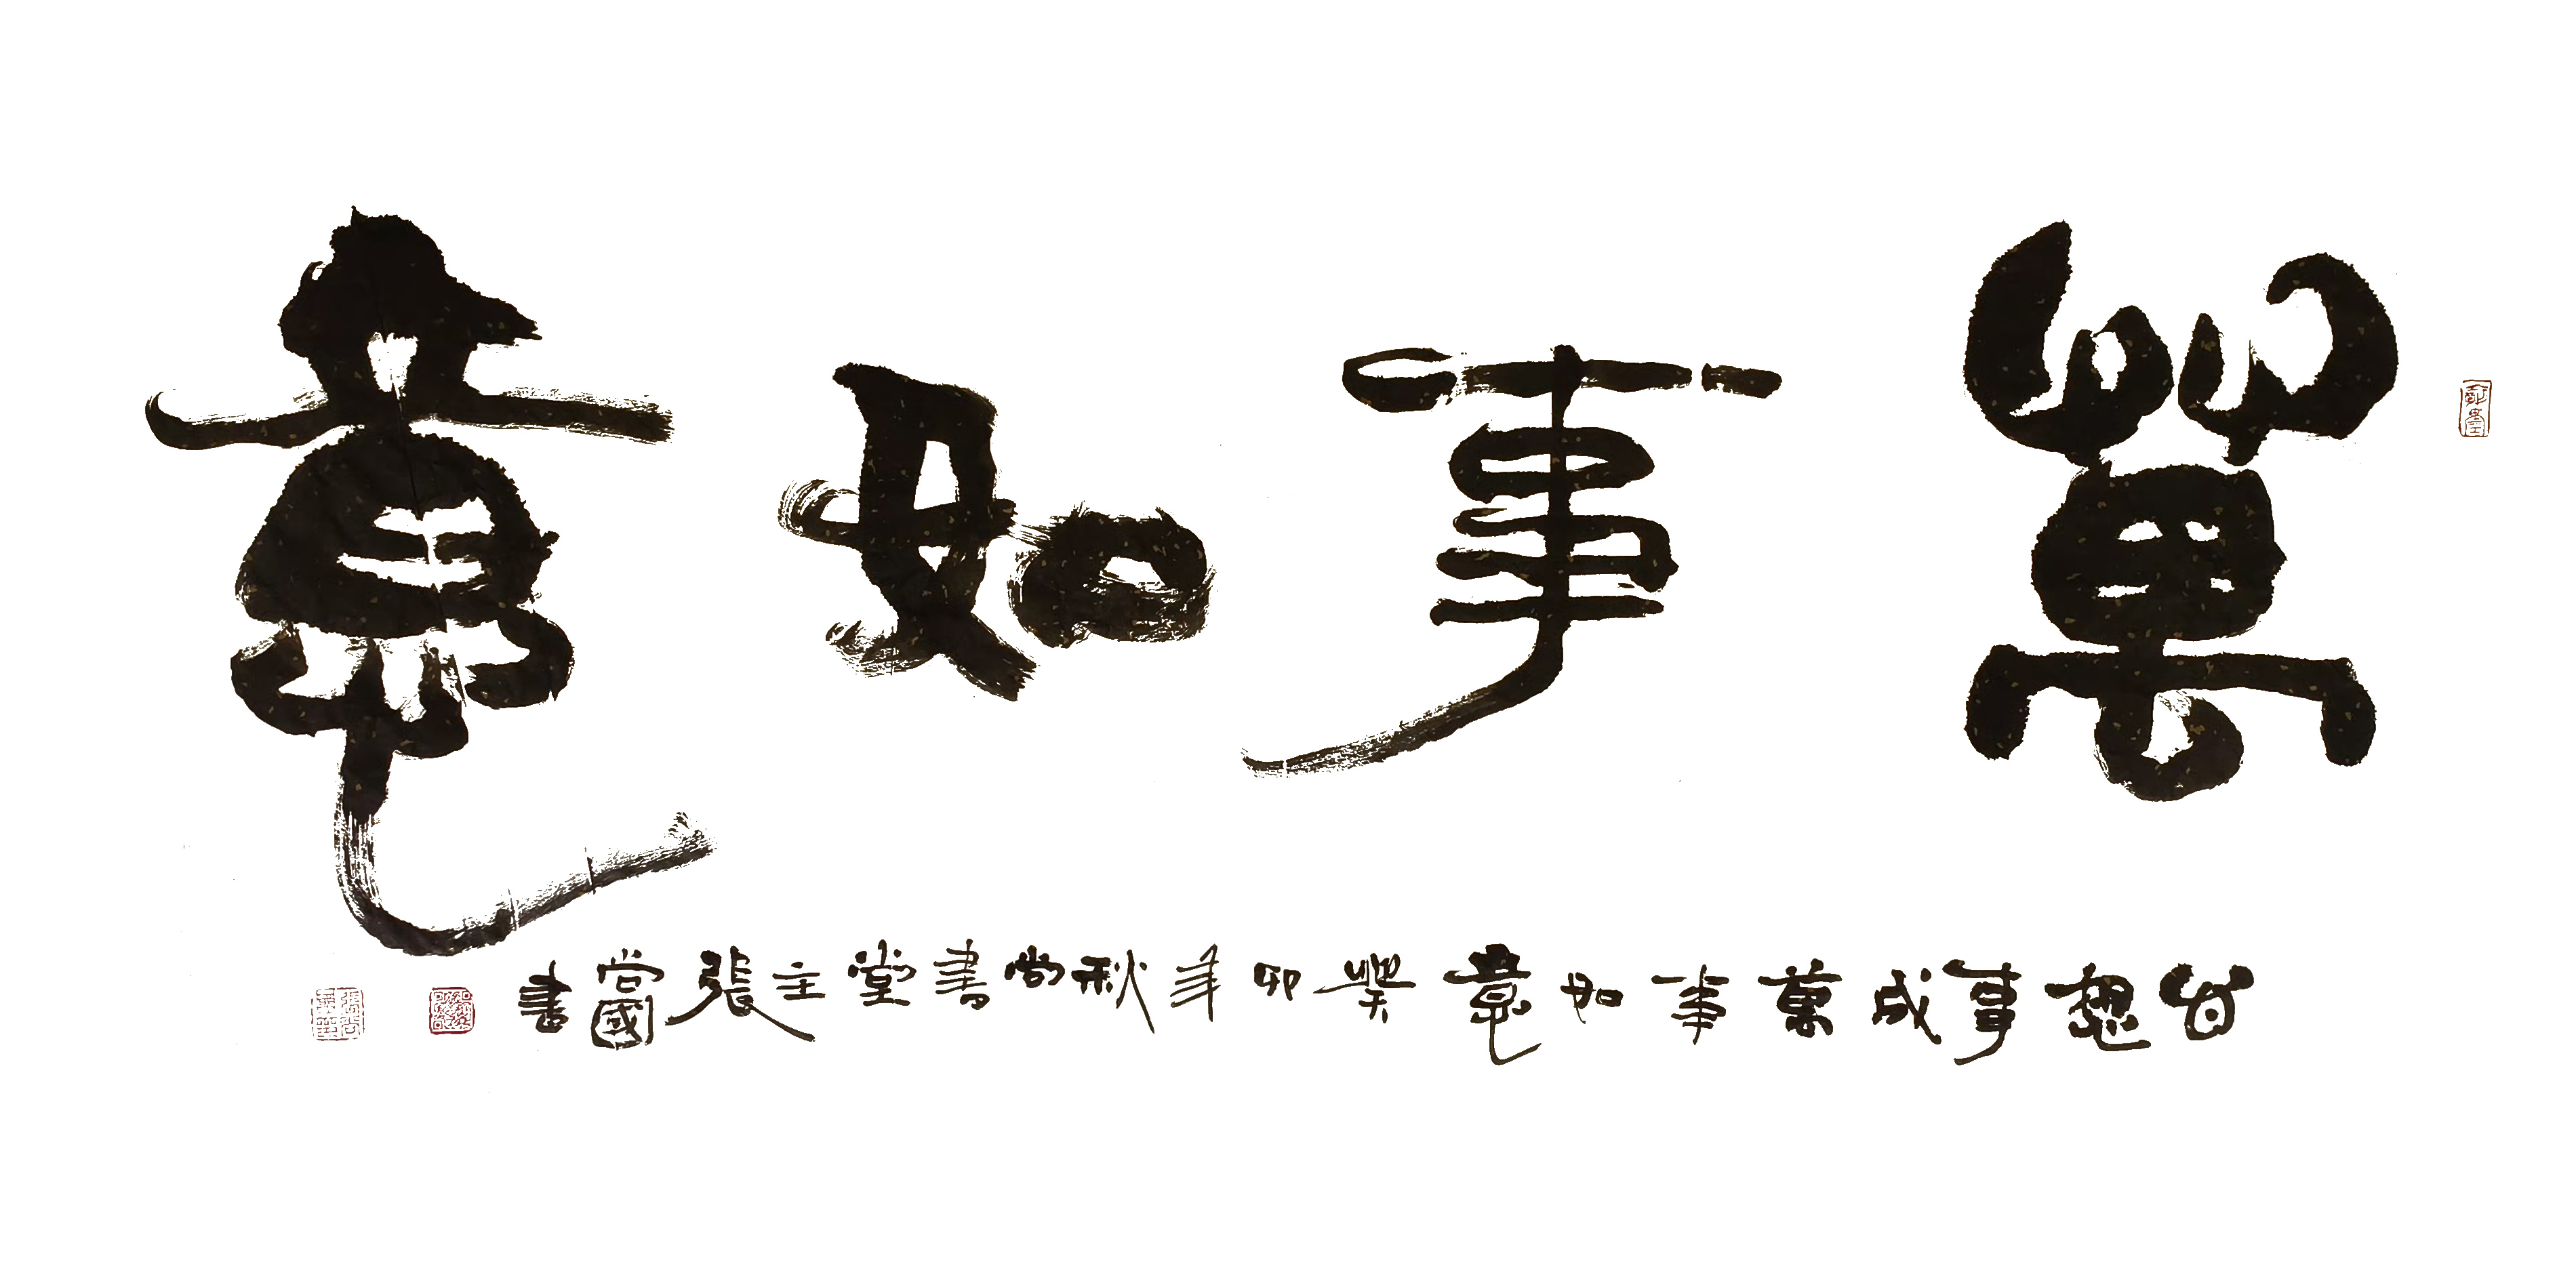 萬事如意
心想事成萬事如意癸卯年秋尚書堂主張尚國書